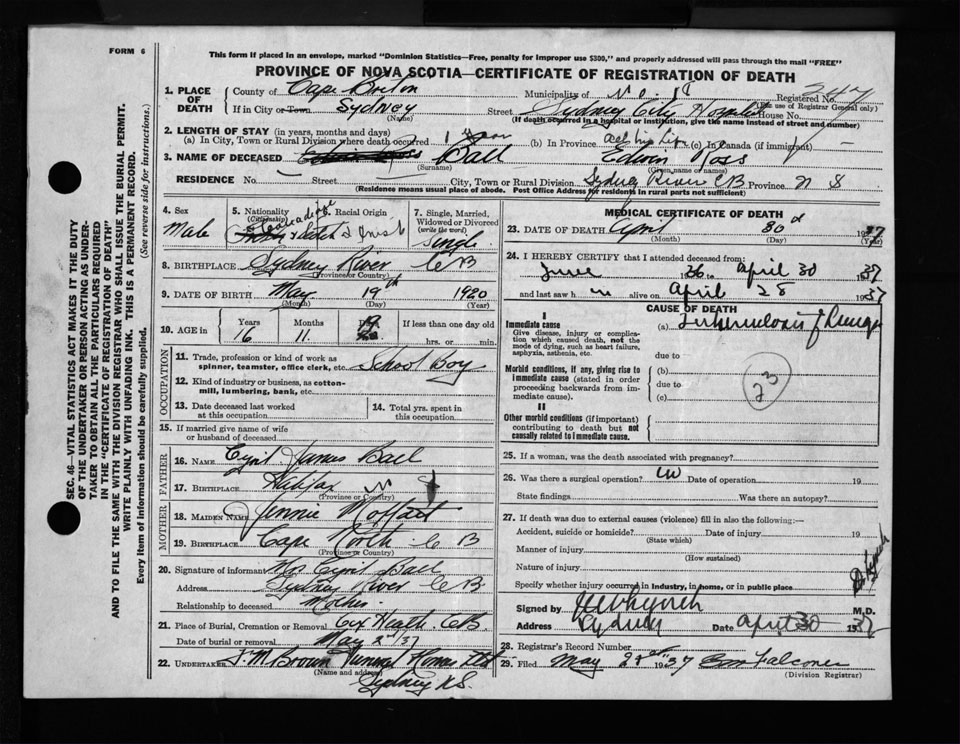 FORM 6
This form if placed in an envelope, marked "Dominion Statistics—Free, penalty for improper use $300," and properly addressed will pass through the mail "FREE"
PROVINCE OF NOVA SCOTIA—CERTIFICATE OF REGISTRATION OF DEATH
1. PLACE OF DEATH
County of Cape Breton Municipality of Registered No. 247
(For use of Registrar General only)
If in City or Town Sydney Street Sydney City Hospital House No.
(Name) (If death occurred in a hospital or institution, give the name instead of street and number)
2. LENGTH OF STAY (in years, months and days)
(a) In City, Town or Rural Division where death occurred 1 year (b) In Province all his life (c) In Canada (if immigrant) —
3. NAME OF DECEASED Ball Edwin Ross
(Surname) (Given name or names)
RESIDENCE No. — Street City, Town or Rural Division Sydney River CB Province N S
(Residence means usual place of abode. Post Office Address for residents in rural parts not sufficient)
4. Sex Male
5. Nationality (Citizenship) Canadian
Racial Origin & Irish
7. Single, Married, Widowed or Divorced (write the word) Single
8. BIRTHPLACE Sydney River C B
(Province or Country)
9. DATE OF BIRTH May 19th 1920
(Month) (Day) (Year)
10. AGE in Years 16 Months 11 If less than one day old
hrs. or min.
OCCUPATION
11. Trade, profession or kind of work as spinner, teamster, office clerk, etc. School Boy
12. Kind of industry or business, as cotton-mill, lumbering, bank, etc.
13. Date deceased last worked at this occupation
14. Total yrs. spent in this occupation
15. If married give name of wife or husband of deceased
FATHER
16. NAME Cyril James Ball
17. BIRTHPLACE Halifax N S
(Province or Country)
MOTHER
18. MAIDEN NAME Jennie Moffatt
19. BIRTHPLACE Cape North C B
(Province or Country)
20. Signature of informant Mrs Cyril Ball
Address Sydney River C B
Relationship to deceased Mother
21. Place of Burial, Cremation or Removal Cox Heath. C.B.
Date of burial or removal May 2nd/37
22. UNDERTAKER T. M. Brown Funeral Home Ltd
(Name and address)
Sydney N.S.
MEDICAL CERTIFICATE OF DEATH
23. DATE OF DEATH April 30 1937
(Month) (Day) (Year)
24. I HEREBY CERTIFY that I attended deceased from:
June 1936 to April 30 1937
and last saw h im alive on April 28 1937
CAUSE OF DEATH
I
Immediate cause
Give disease, injury or complication which caused death, not the mode of dying, such as heart failure, asphyxia, asthenia, etc.
(a) Tuberculosis of Lungs
due to
Morbid conditions, if any, giving rise to immediate cause (stated in order proceeding backwards from immediate cause).
(b)
due to
(c)
23
II
Other morbid conditions (if important) contributing to death but not causally related to immediate cause.
25. If a woman, was the death associated with pregnancy?
26. Was there a surgical operation? no Date of operation 19
State findings Was there an autopsy?
27. If death was due to external causes (violence) fill in also the following:—
Accident, suicide or homicide? Date of injury 19
(State which)
Manner of injury
(How sustained)
Nature of injury
Specify whether injury occurred in industry, in home, or in public place
Signed by M.D.
Address Sydney Date April 30 1937
28. Registrar's Record Number
29. Filed May 1937 Falconer
(Division Registrar)
SEC. 46—VITAL STATISTICS ACT MAKES IT THE DUTY OF THE UNDERTAKER OR PERSON ACTING AS UNDERTAKER TO OBTAIN ALL THE PARTICULARS REQUIRED IN THE "CERTIFICATE OF REGISTRATION OF DEATH" AND TO FILE THE SAME WITH THE DIVISION REGISTRAR WHO SHALL ISSUE THE BURIAL PERMIT.
WRITE PLAINLY WITH UNFADING INK. THIS IS A PERMANENT RECORD.
Every item of information should be carefully supplied. (See reverse side for instructions.)